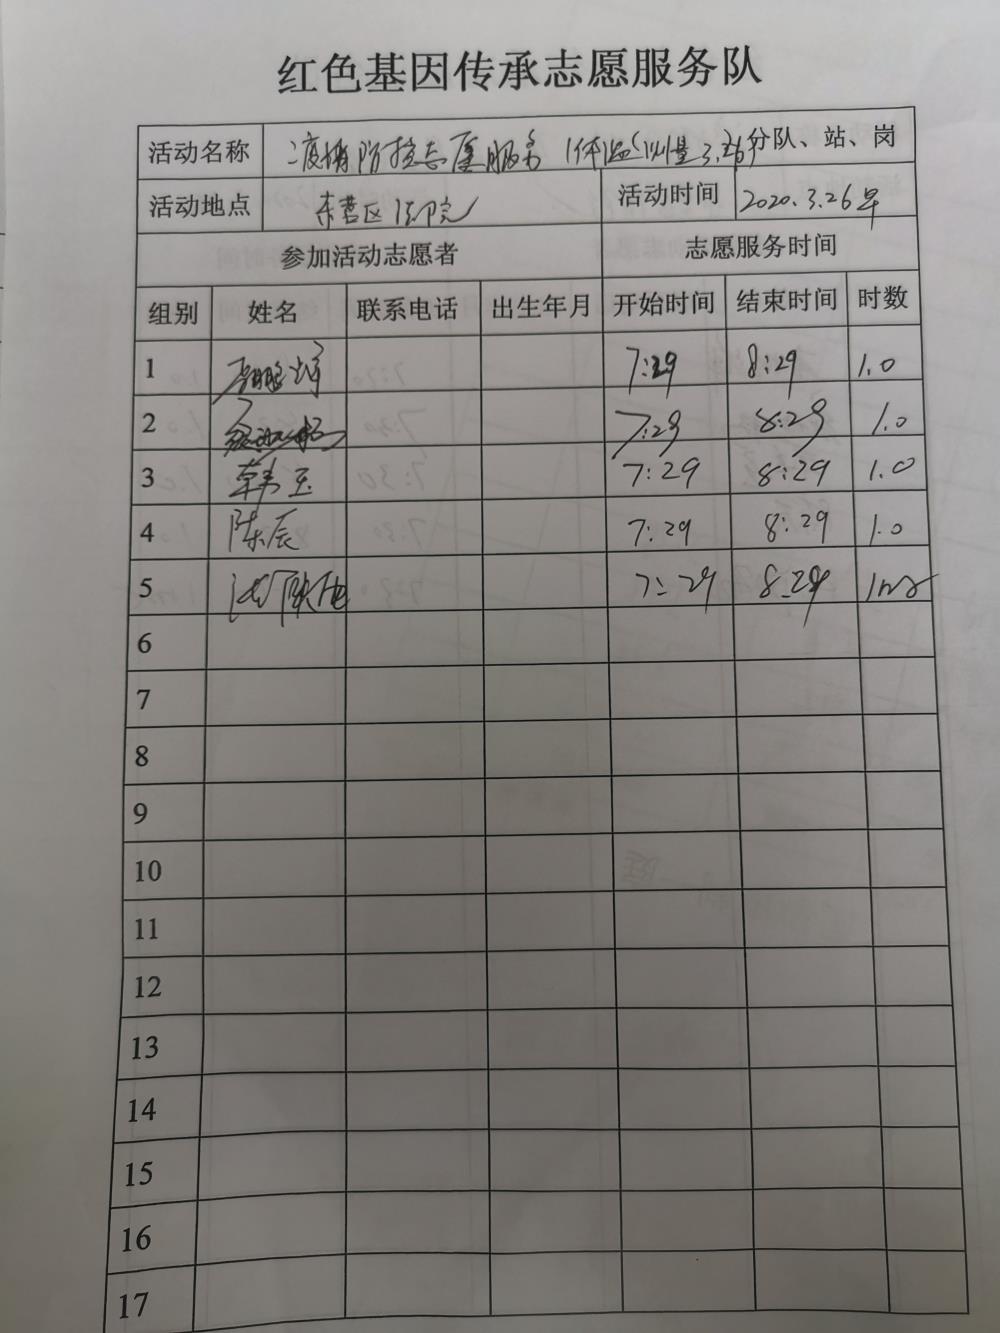 红色基因传承志愿服务队
活动名称 疫情防控志愿服务（体温测量3.26）分队、站、岗
活动地点 东营区法院 活动时间 2020.3.26号
参加活动志愿者 志愿服务时间
组别 姓名 联系电话 出生年月 开始时间 结束时间 时数
1 7:29 8:29 1.0
2 7:29 8:29 1.0
3 韩玉 7:29 8:29 1.0
4 陈辰 7:29 8:29 1.0
5 7:29 8:29
6
7
8
9
10
11
12
13
14
15
16
17